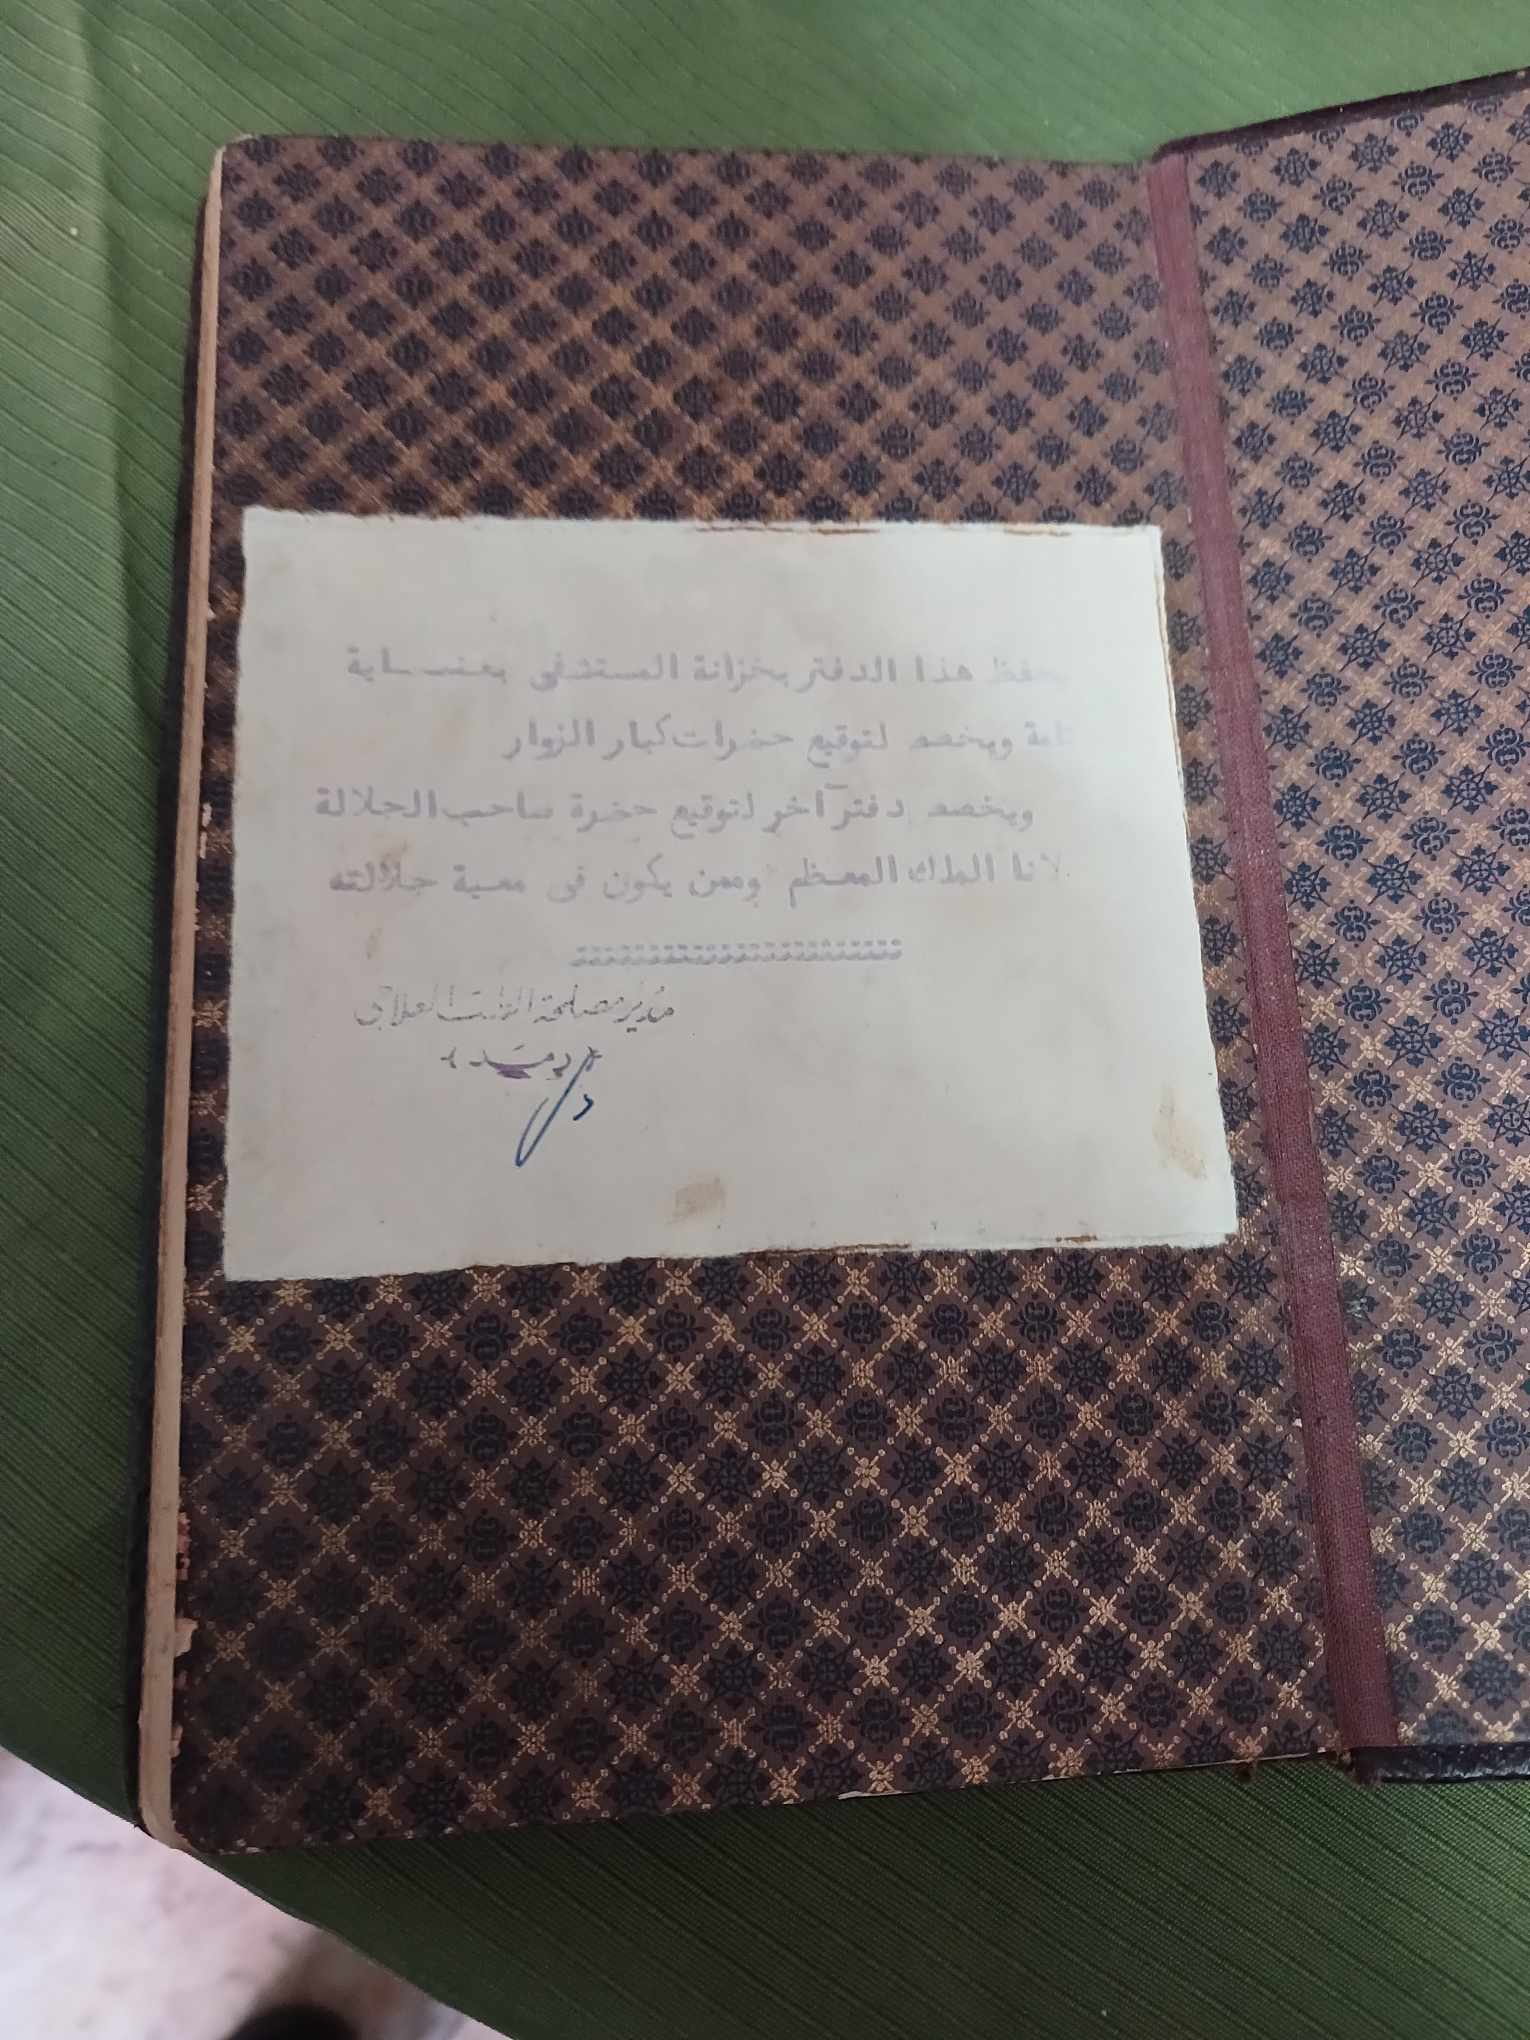 يحفظ هذا الدفتر بخزانة المستشفى بعنـــاية
تامة ويخصص لتوقيع حضرات كبار الزوار
ويخصص دفتر آخر لتوقيع حضرة صاحب الجلالة
لانا الملك المعظم وممن يكون فى معية جلالته
مدير مصلحة الطب العلاجى
(رمد)